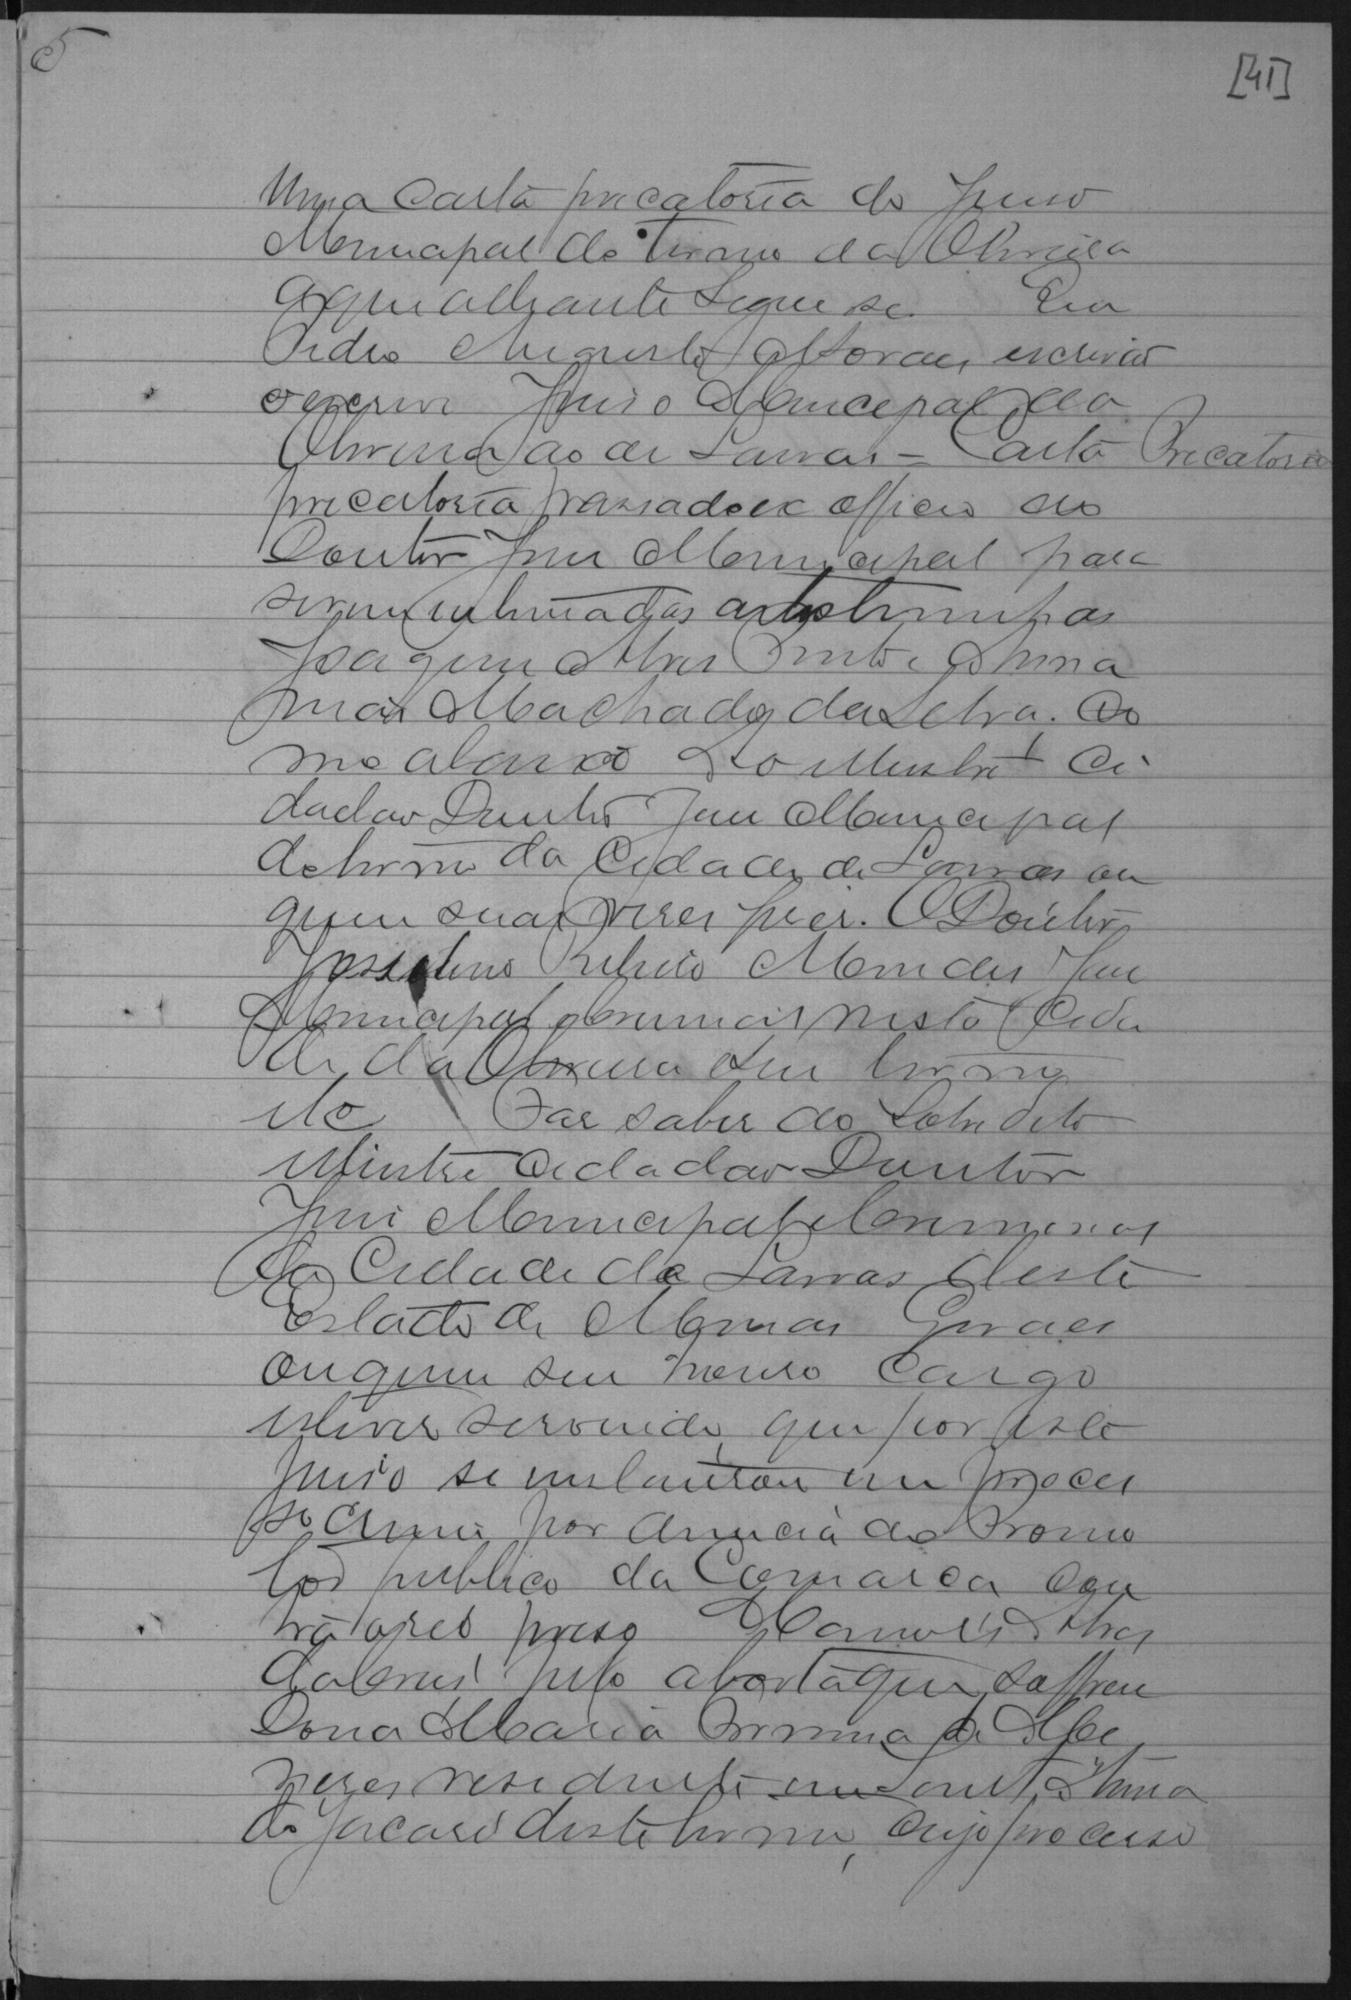 5
[41]
Uma Carta precatoria do Juiso
Municipal do Termo da Oliveira
a qual adiante Segue se. Eu
Pedro Augusto Moraes, escrivão
o escrevi Juiso Municipal da
Oliveira ao de Lavras = Carta Precatoria
precatoria passada ex officio do
Doutor Juiz Municipal para
serem intimadas as testemunhas
Joaquim Alves Pinto e Anna
Machado da Silva. Co
mo abaixo Ao Illustre Ci
dadão Doutor Juiz Municipal
do termo da Cidade de Lavras ou
quem suas veses fiser. O Doutor
Ribeiro Mendes Juiz
Municipal e Orphãos nesta Cida
de da Oliveira e seu termo
etc Faz saber ao Sobredito
Illustre Cidadão Doutor
Juiz Municipal e Criminal
da Cidade de Lavras deste
Estado de Minas Geraes
ou quem seu honroso cargo
estiver servindo, que por este
Juiso se instaurou um proces
so crime por denuncia do Promo
tor publico da Comarca con
tra o reo preso Manoel Alves
da Cruz pelo aborto que soffreu
Dona Maria Firmina de Me
neses residente em Sant'Anna
do Jacaré deste termo, cujo processo